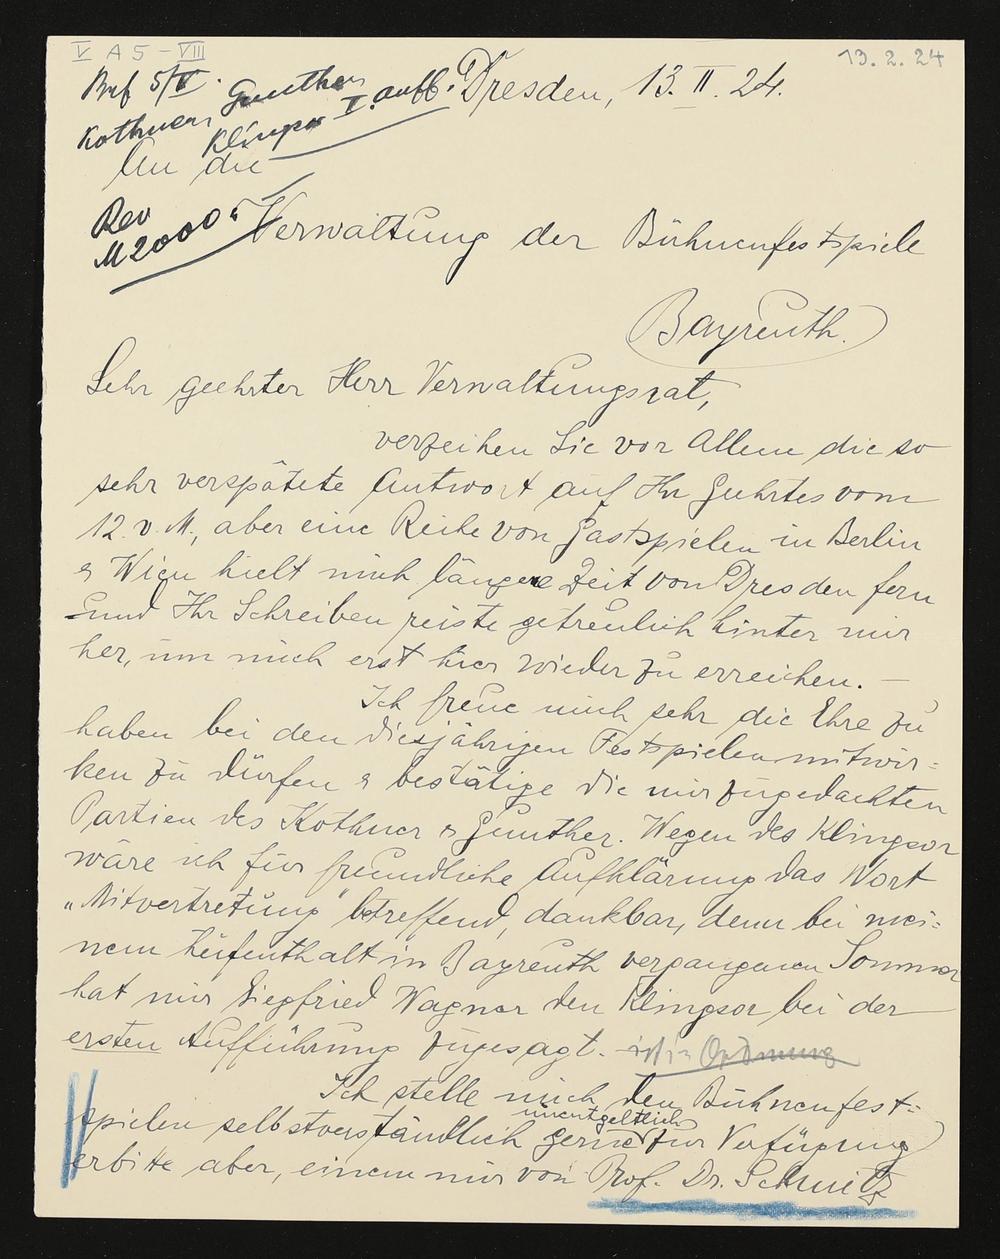 V A 5 - VIII
13. 2. 24
Brf 5/V.
Kothner, Gunther
Klingsor I. auff.
Dresden, 13. II. 24.
An die
Rev
M 2000
Verwaltung der Bühnenfestspiele
Bayreuth.
Sehr geehrter Herr Verwaltungsrat,
verzeihen Sie vor Allem die so
sehr verspätete Antwort auf Ihr Geehrtes vom
12. v. M., aber eine Reihe von Gastspielen in Berlin
& Wien hielt mich längere Zeit von Dresden fern
und Ihr Schreiben reiste getreulich hinter mir
her, um mich erst hier wieder zu erreichen. –
Ich freue mich sehr die Ehre zu
haben bei den diesjährigen Festspielen mitwir=
ken zu dürfen & bestätige die mir zugedachten
Partien des Kothner & Gunther. Wegen des Klingsor
wäre ich für freundliche Aufklärung das Wort
„Mitvertretung" betreffend, dankbar, denn bei mei=
nem Aufenthalt in Bayreuth vergangenen Sommer
hat mir Siegfried Wagner den Klingsor bei der
ersten Aufführung zugesagt. ist in Ordnung
Ich stelle mich den Bühnenfest=
spielen selbstverständlich gerne unentgeltlich zur Verfügung
erbitte aber, einem mir von Prof. Dr. Schmitz